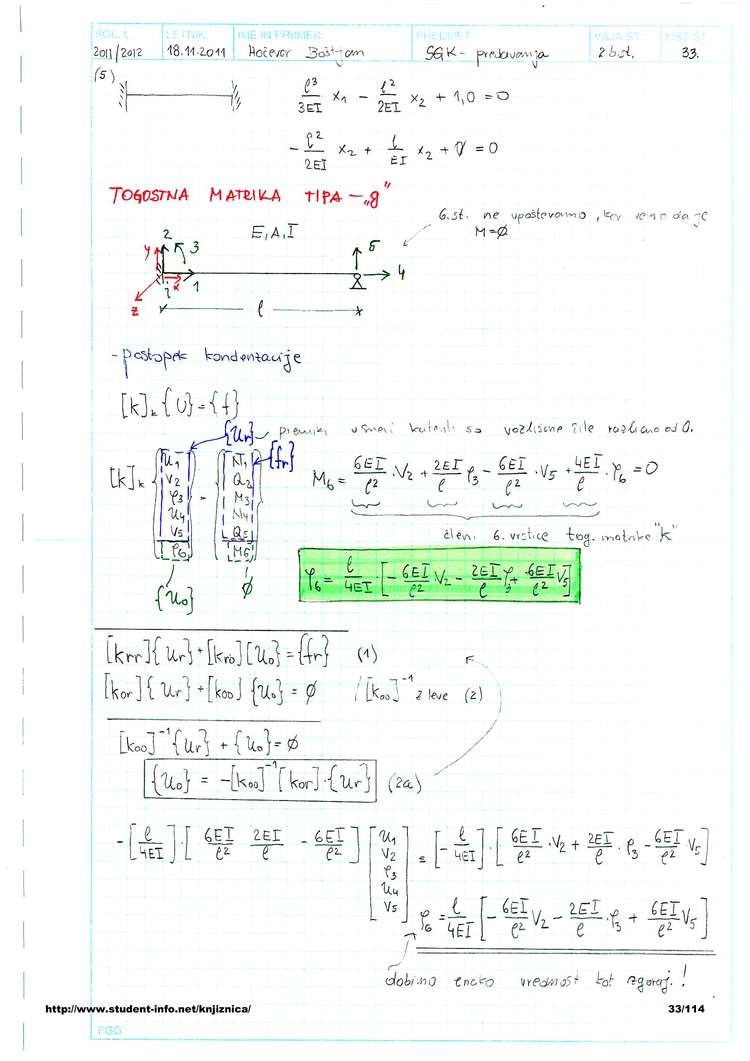 ŠOL. L. LETNIK: IME IN PRIIMEK: PREDMET: VAJA ŠT.: LIST ŠT.
2011/2012 18.11.2011 Hočevar Boštjan SGK - predavanja 33.
(5) ℓ³/3EI x₁ - ℓ²/2EI x₂ + 1,0 = 0
-ℓ²/2EI x₂ + ℓ/EI x₂ + 0 = 0
TOGOSTNA MATRIKA TIPA - "g"
6. st. ne upoštevamo, ker vemo da je
M=∅
E, A, I
y 2 3 5
z i x 1 4
ℓ
- postopek kondenzacije
[k]ₖ {U} = {f}
{Ur} pomiki v smeri katerih so vozliščne sile različno od 0.
[k]ₖ {u₁ v₂ φ₃ u₄ v₅ φ₆} = {N₁ Q₂ M₃ N₄ Q₅ M₆} {fr}
M₆ = 6EI/ℓ² · v₂ + 2EI/ℓ φ₃ - 6EI/ℓ² · v₅ + 4EI/ℓ · φ₆ = 0
členi 6. vrstice tog. matrike "k"
{u₀} ∅
φ₆ = ℓ/4EI · [-6EI/ℓ² v₂ - 2EI/ℓ φ₃ + 6EI/ℓ² v₅]
[krr]{ur} + [kro]{u₀} = {fr} (1)
[kor]{ur} + [koo]{u₀} = ∅ /[koo]⁻¹ z leve (2)
[koo]⁻¹{ur} + {u₀} = ∅
{u₀} = -[koo]⁻¹[kor]·{ur} (2a)
-[ℓ/4EI]·[6EI/ℓ² 2EI/ℓ -6EI/ℓ²] [u₁ v₂ φ₃ u₄ v₅] = [-ℓ/4EI]·[6EI/ℓ² · v₂ + 2EI/ℓ · φ₃ - 6EI/ℓ² v₅]
φ₆ = ℓ/4EI [-6EI/ℓ² v₂ - 2EI/ℓ · φ₃ + 6EI/ℓ² v₅]
dobimo enako vrednost kot zgoraj!
http://www.student-info.net/knjiznica/ 33/114
FGG